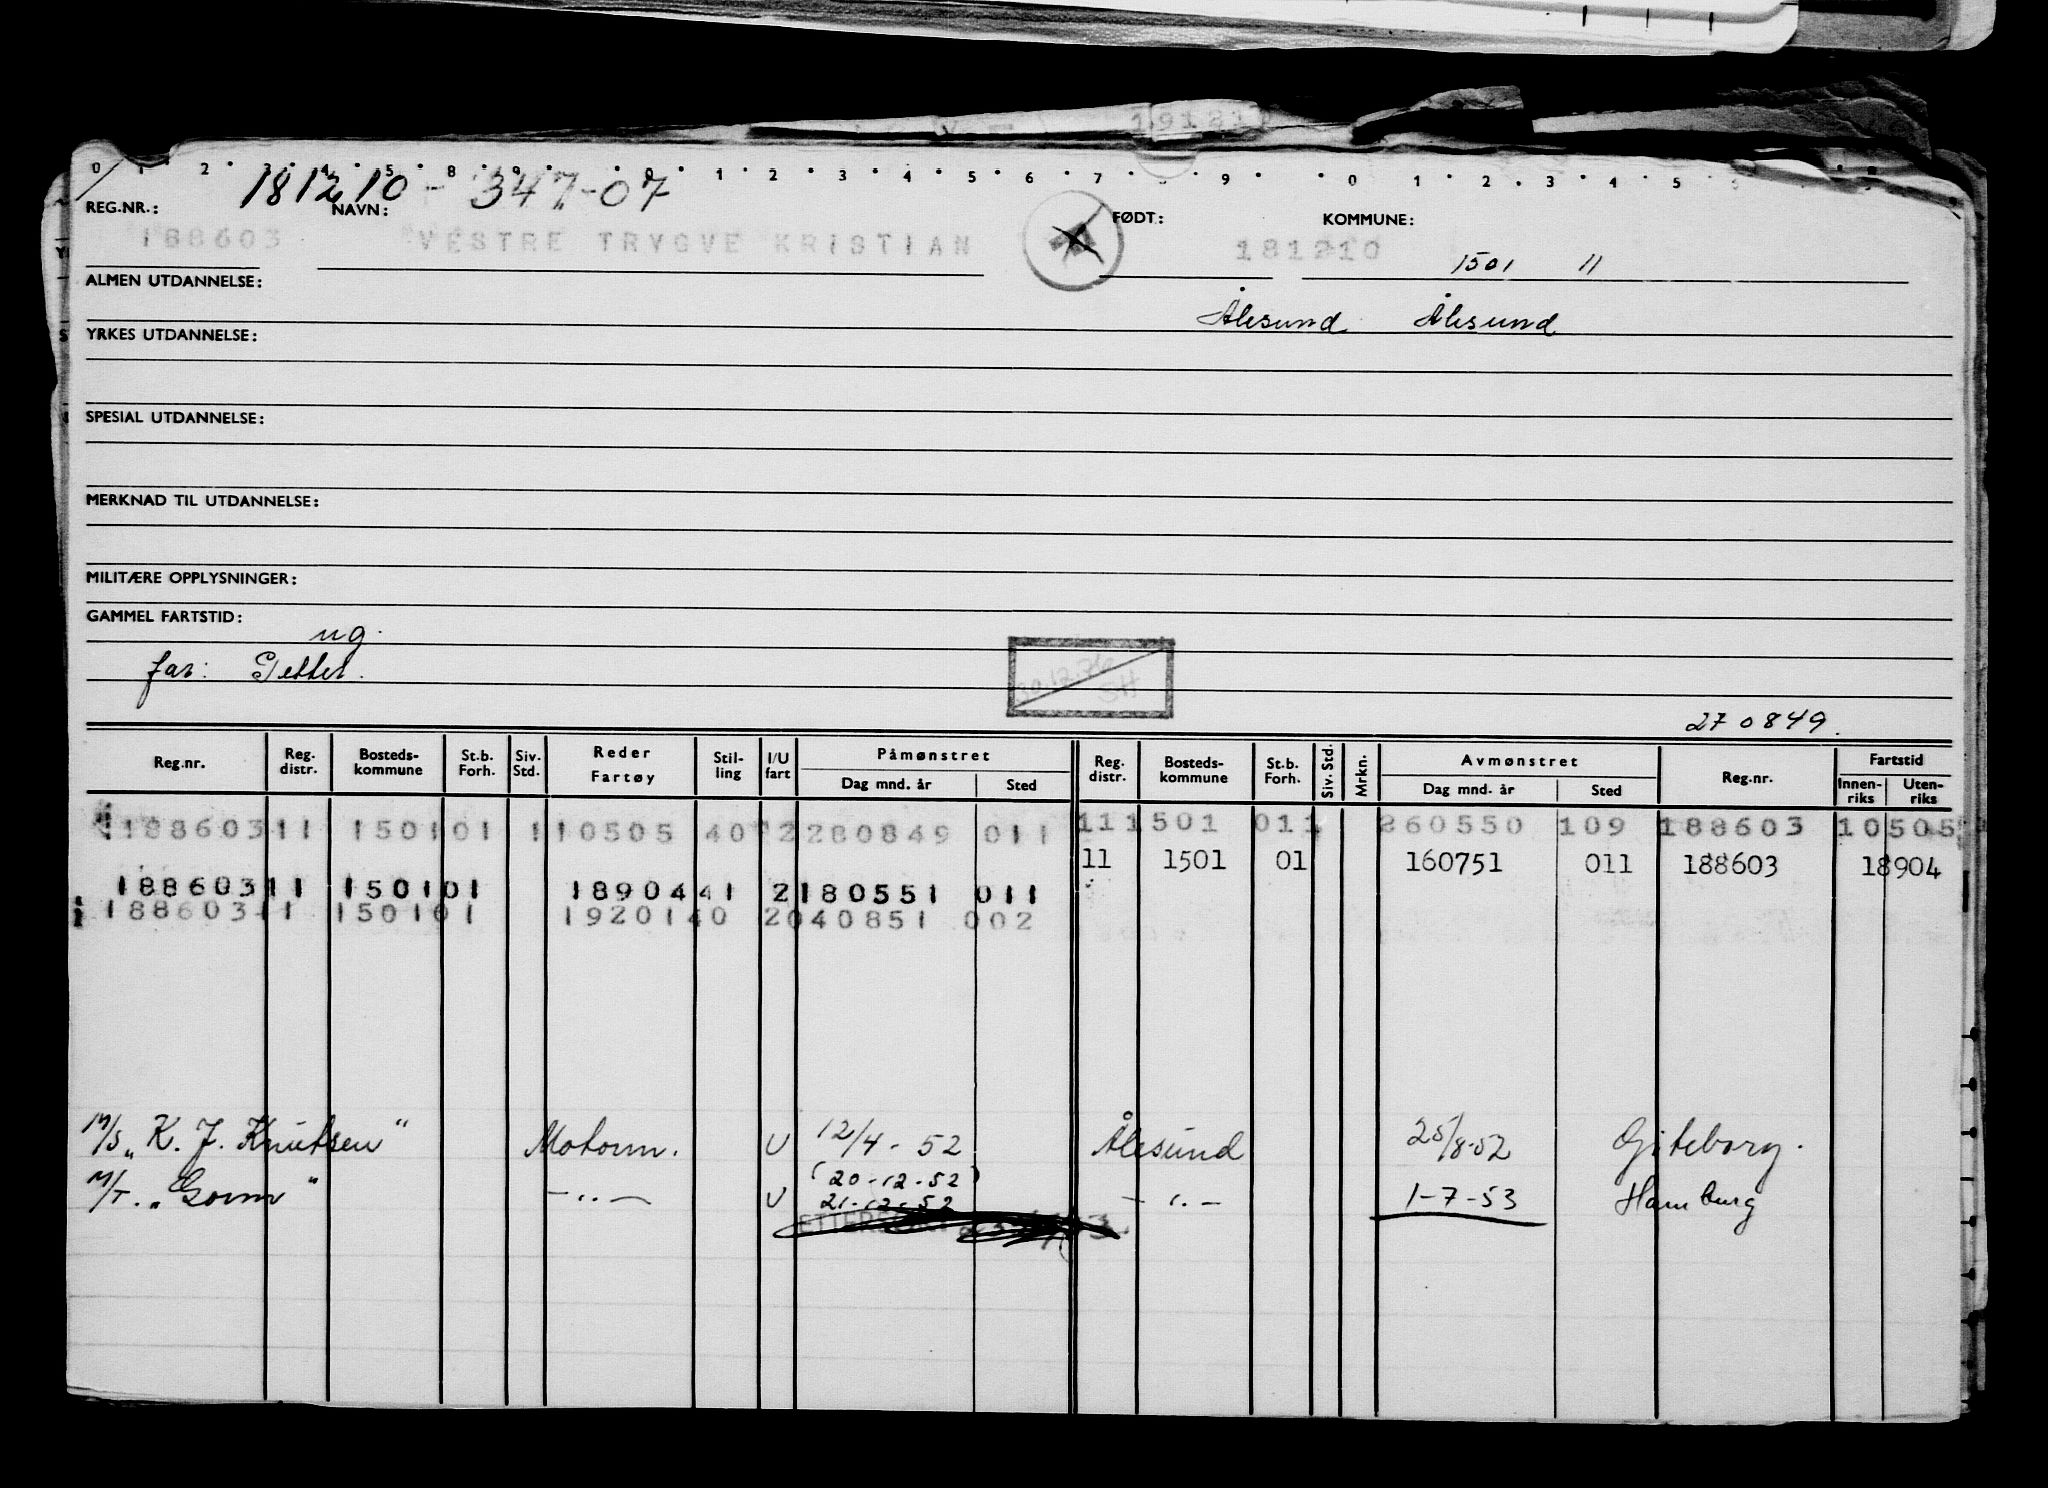 0 1 2 3 4 5 8 9 0 1 2 3 4 5 6 7 8 9 0 1 2 3 4 5
181210 - 347-07
REG.NR.: NAVN: FØDT: KOMMUNE:
188603 VESTRE TRYGVE KRISTIAN 181210 1501 11
ALMEN UTDANNELSE:
Ålesund Ålesund
YRKES UTDANNELSE:
SPESIAL UTDANNELSE:
MERKNAD TIL UTDANNELSE:
MILITÆRE OPPLYSNINGER:
GAMMEL FARTSTID:
ug.
far: Petter.
270849.
Reg.nr. Reg. distr. Bosteds- kommune St.b. Forh. Siv. Std. Reder Fartøy Stil- ling I/U fart Påmønstret Dag mnd. år Sted Reg. distr. Bosteds- kommune St.b. Forh. Siv. Std. Mrkn. Avmønstret Dag mnd. år Sted Reg.nr. Fartstid Innen- riks Uten- riks
18860311 150101 110505 40 2280849 011 111501 011 260550 109 188603 10505
11 1501 01 160751 011 188603 18904
18860311 150101 1890441 2180551 011
18860311 150101 1920140 2040851 002
M/S „K. J. Knutsen" Motorm. U 12/4 - 52 Ålesund 25/8-52 Göteborg.
(20-12-52)
M/T. „Gorm" —„— U 21-12-52 —„— 1-7-53 Hamburg